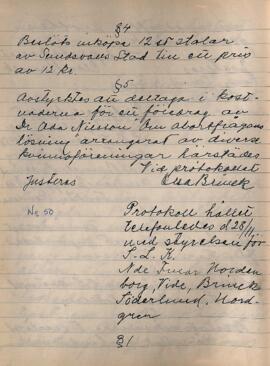 §4
Beslöts inköpa 12 st stolar
av Sundsvalls Stad till ett pris
av 12 kr.
§5
Avstyrktes att deltaga i kost-
naderna för ett föredrag av
Dr Ada Nilsson "Om abortfrågans
lösning" arrangerat av diverse
kvinnoföreningar härstädes
Vid protokollet
Justeras Elsa Brunck
No 50 Protokoll hållet
telefonledes d 28/11
med styrelsen för
S.L.K.
Nde Norden
borg, Vide, Brunck
Söderlund, Nord-
gren
§1